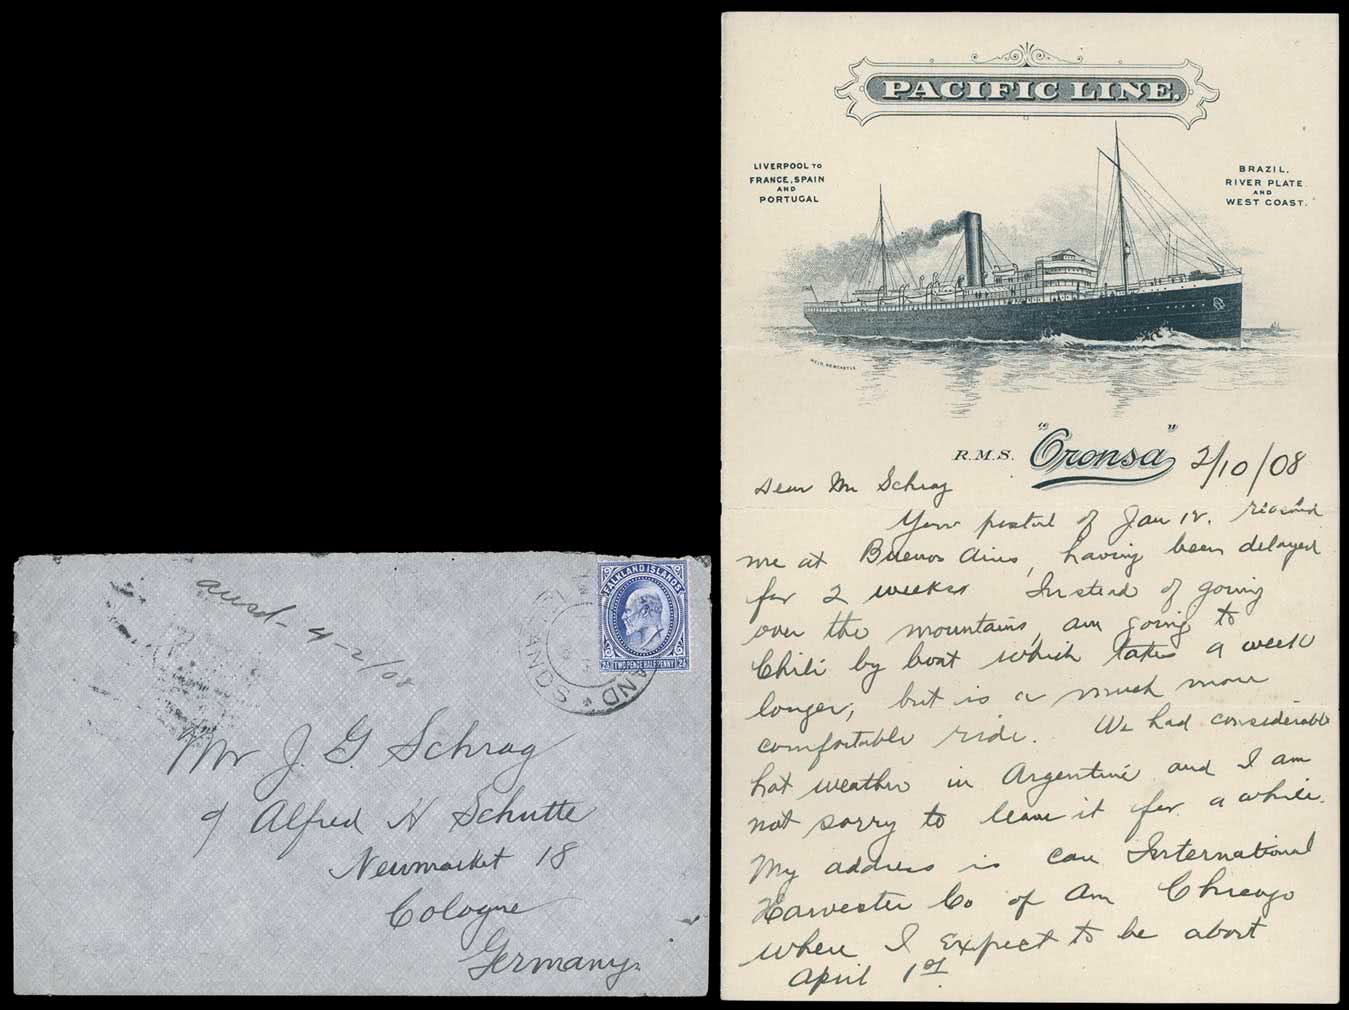 ansd - 4-2/08
FALKLAND ISLANDS
2½ TWO PENCE HALF PENNY 2½
Mr J. G. Schrag
c/ Alfred H Schutte
Newmarket 18
Cologne
Germany.
PACIFIC LINE.
LIVERPOOL TO
FRANCE, SPAIN
AND
PORTUGAL
BRAZIL,
RIVER PLATE
AND
WEST COAST.
WEIR, NEWCASTLE
R.M.S. "Oronsa" 2/10/08
Dear Mr Schrag
Your postal of Jan 12. received
me at Buenos Aires, having been delayed
for 2 weeks Instead of going
over the mountains, am going to
Chili by boat which takes a week
longer, but is a much more
comfortable ride. We had considerable
hot weather in Argentine and I am
not sorry to leave it for a while.
My address is care International
Harvester Co of Am Chicago
where I expect to be about
April 1st.